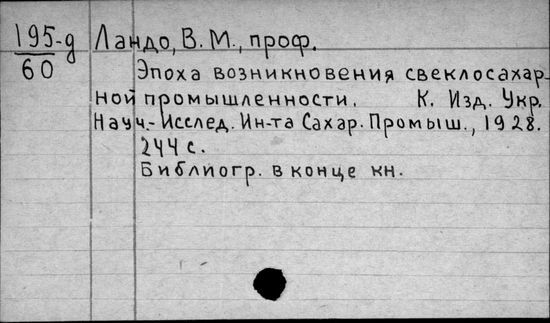 195-д
60
Ландо, В. М., проф.
Эпоха возникновения свеклосахар-
ной промышленности. К. Изд. Укр.
Науч.- Исслед. Ин-та Сахар. Промыш., 1928.
244 с.
Библиогр. в конце кн.